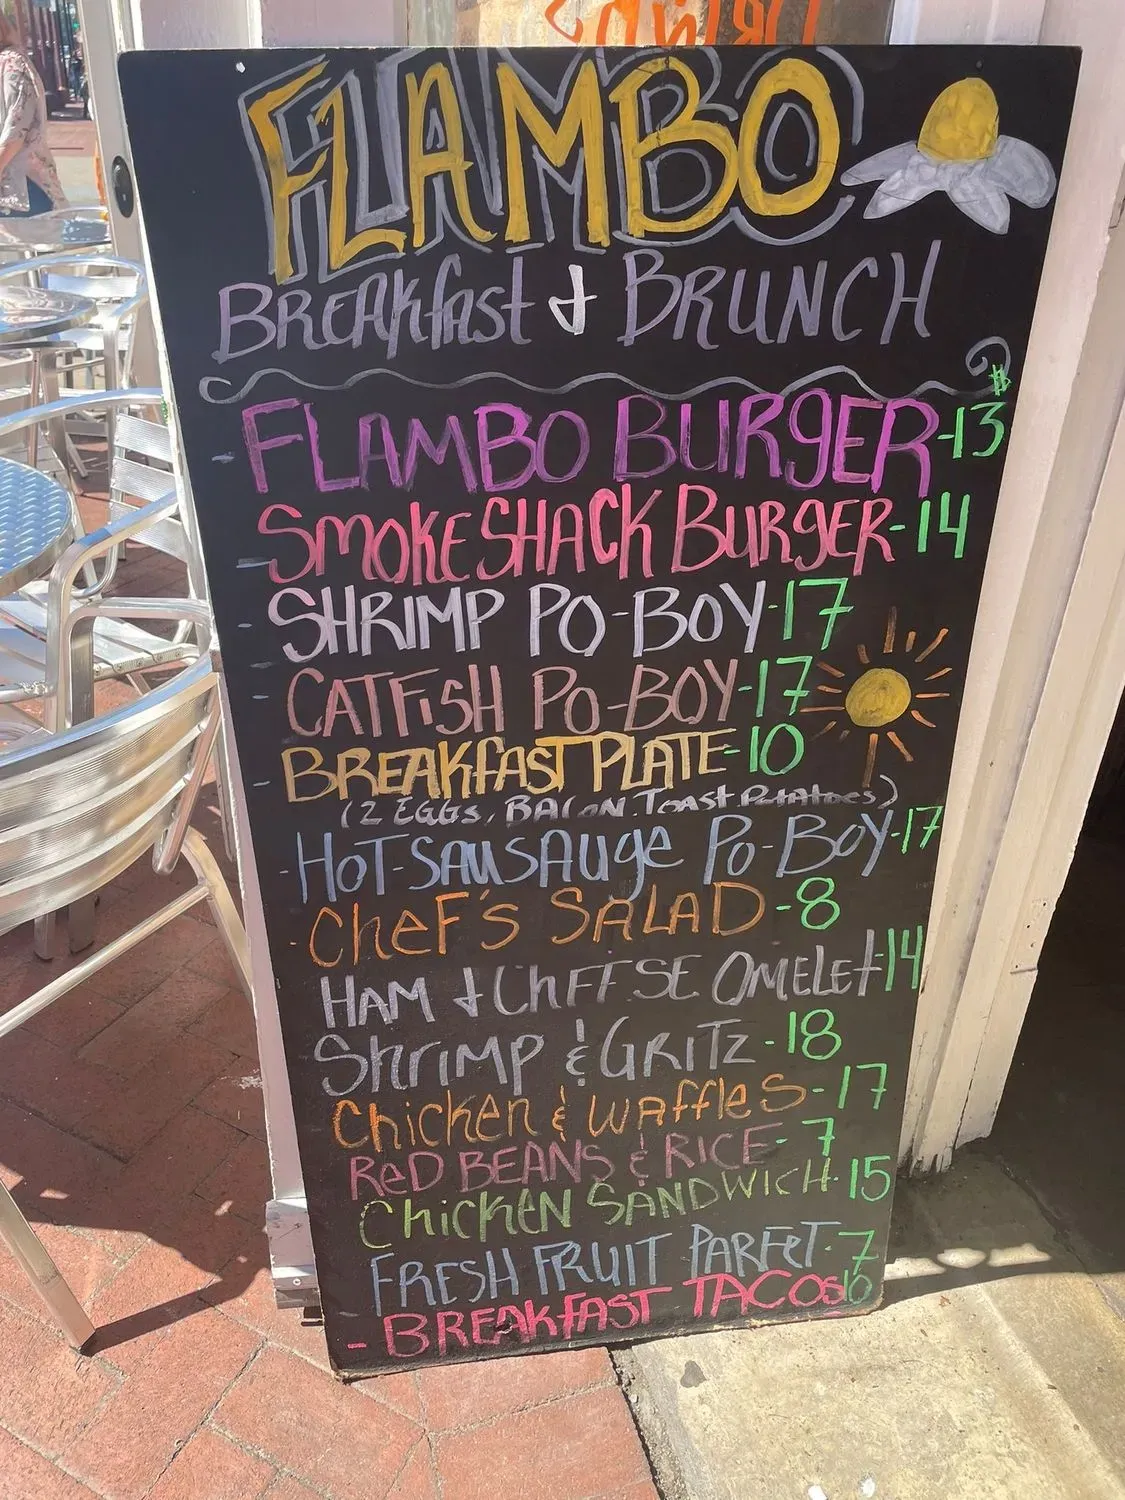 FLAMBO
BREAKfast & BRUNCH
$
- FLAMBO BURGER - 13
- SMOKESHACK BURGER - 14
- SHRIMP PO-BOY - 17
- CATFISH PO-BOY - 17
- BREAKFAST PLATE - 10
(2 EGGS, BACON, TOAST POTATOES)
- HOT-SAUSAUGE PO-BOY - 17
- CHEF'S SALAD - 8
HAM & CHEESE OMELET 14
SHRIMP & GRITZ - 18
CHICKEN & WAFFLES - 17
RED BEANS & RICE - 7
CHICKEN SANDWICH - 15
FRESH FRUIT PARFET - 7
- BREAKFAST TACOS